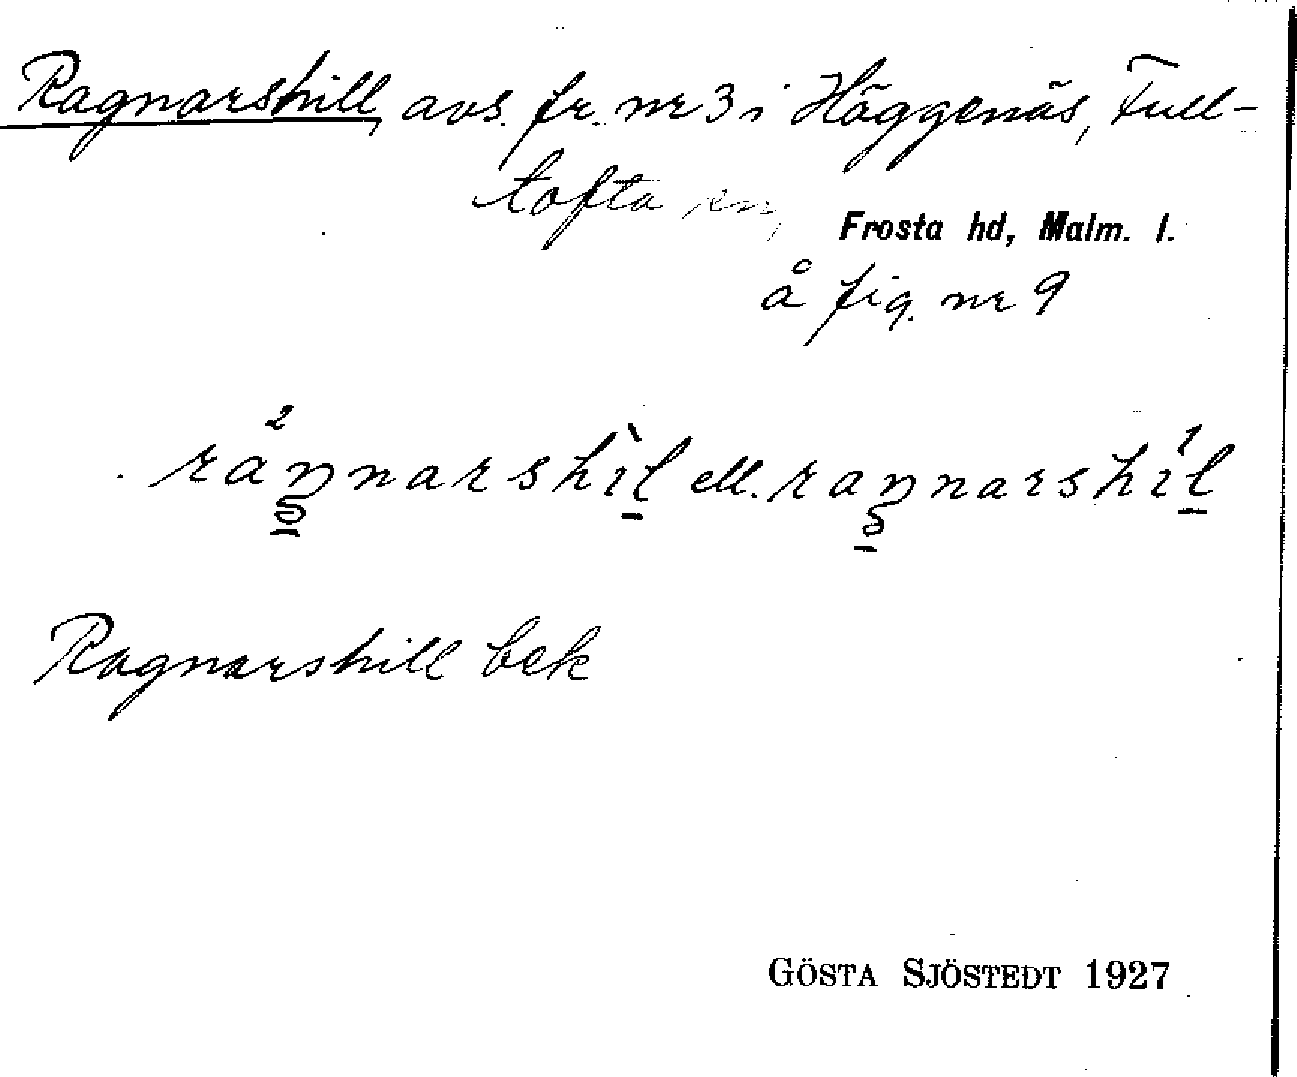 Ragnarshill, avs. fr. nr 3 i Häggenäs, Full-
tofta sn,
Frosta hd, Malm. l.
å fig. nr 9
ell.
Ragnarshill bek
GÖSTA SJÖSTEDT 1927